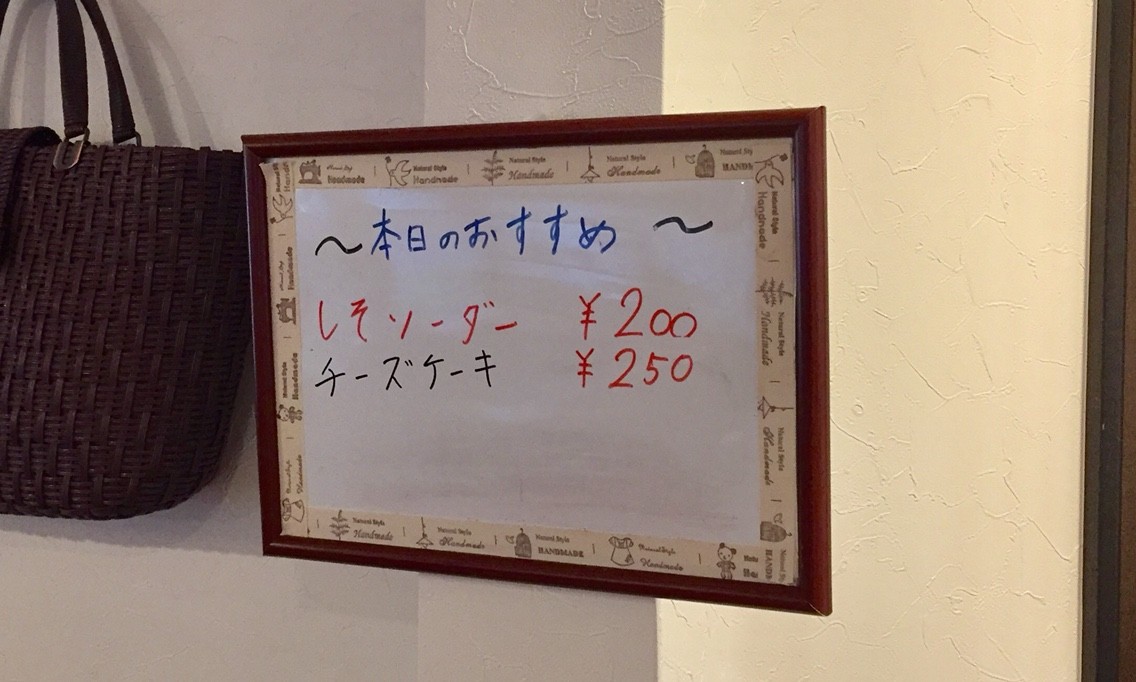 ～本日のおすすめ ～
しそソーダー ¥200
チーズケーキ ¥250
Handmade
Natural Style Handmade
Natural Style Handmade
Natural Style Handmade
Natural Style
Natural Style Handmade
Natural Style Handmade
Natural Style Handmade
Natural Style Handmade
Natural Style Handmade
HANDMADE
Natural Style Handmade